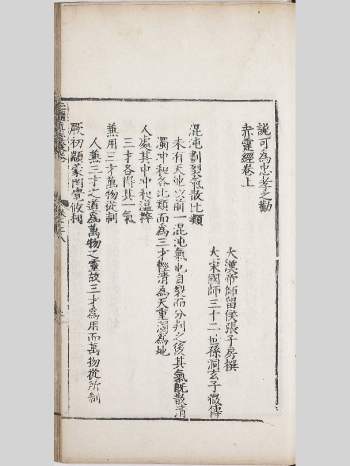 說可為忠孝之勸
赤霆經卷上
大漢帝師留侯張子房撰
大宋國師三十二世孫洞玄子微傳
混沌剖裂氣散比類
未有天地以前一混沌氣也自裂而分判之後其氣既散清
濁沖和各比類而為三才輕清為天重濁為地
人處其中沖和溫粹
三才各用其一氣
兼用三才萬物從制
人兼三才之道為萬物之靈故三才為用而萬物從所制
厥初顓蒙